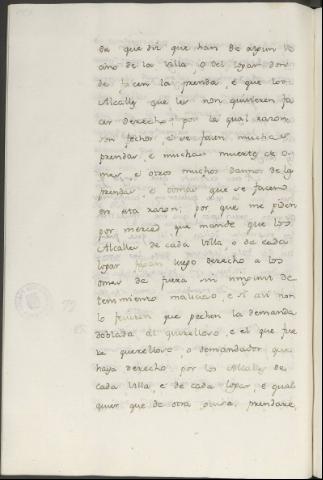 da que diz que han de algun ve
cino de la Villa, o del logar don
de facen la prenda, e que los
Alcalles que les non quisieren fa
cer derecho, por la qual razon
son fechas, e se facen muchas
prendas, e muchas muertes de o
mes, e otros muchos dannos de la
prendas, e tomas que se facen
en esta razon, por que me piden
por merced que mande que los
Alcalles de cada Villa, o de cada
logar fagan luego derecho a los
omes de fuera sin ninguno de
tenimiento malicioso, e si asi non
lo ficieren que pechen la demanda
doblada al querelloso, e el que fue
re querelloso o demandador que
haya derecho por los Alcalles de
cada Villa, e de cada logar, e qual
quier que de otra guisa prendare,